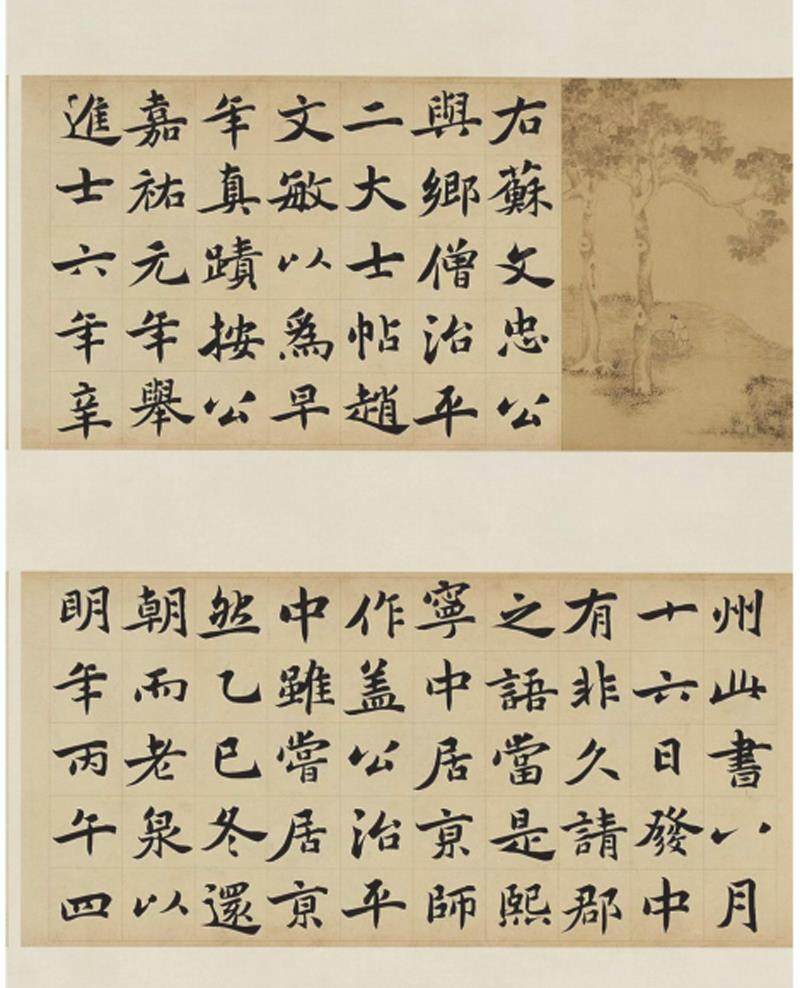 右蘇文忠公
與鄉僧治平
二大士帖趙
文敏以爲早
年真蹟按公
嘉祐元年舉
進士六年辛
州此書八月
十六日發中
有非久請郡
之語當是熙
寧中居京師
作蓋公治平
中雖嘗居京
然乙巳冬還
朝而老泉以
明年丙午四